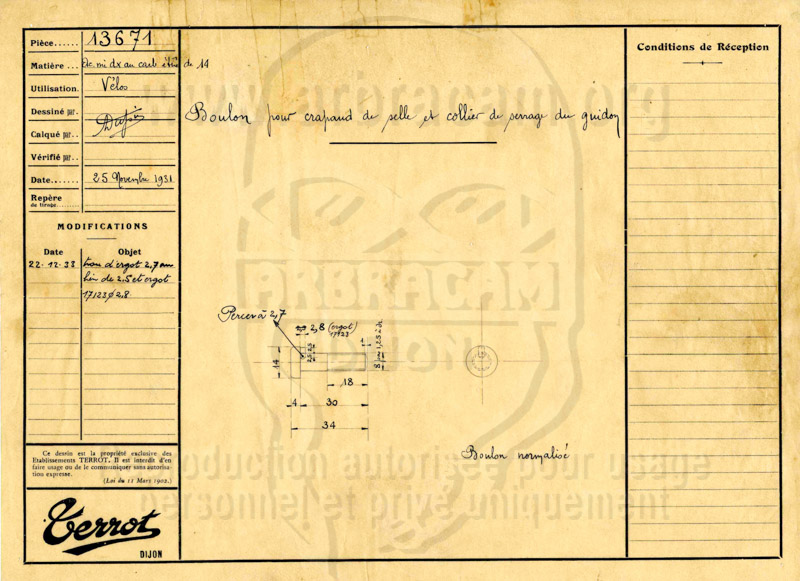 Pièce...... 13671
Matière ... Ac. mi dx au carb étiré de 14
Utilisation. Vélos
Dessiné par.
Calqué par..
Vérifié par..
Date....... 25 Novembre 1931
Repère
de tirage.........
MODIFICATIONS
Date Objet
22-12-33 trou d'ergot 2,7 au
lieu de 2.5 et ergot
17123 ø 2,8
Ce dessin est la propriété exclusive des
Etablissements TERROT. Il est interdit d'en
faire usage ou de le communiquer sans autorisa-
tion expresse.
(Loi du 11 Mars 1902.)
Terrot
DIJON
Boulon pour crapaud de selle et collier de serrage du guidon
Percer à 2,7
2,8 (ergot)
17123
2,5
14
8
18
4 30
34
Boulon normalisé
Conditions de Réception
www.arbracam.org
ARBRACAM
DIJON
Reproduction autorisée pour usage
personnel et privé uniquement